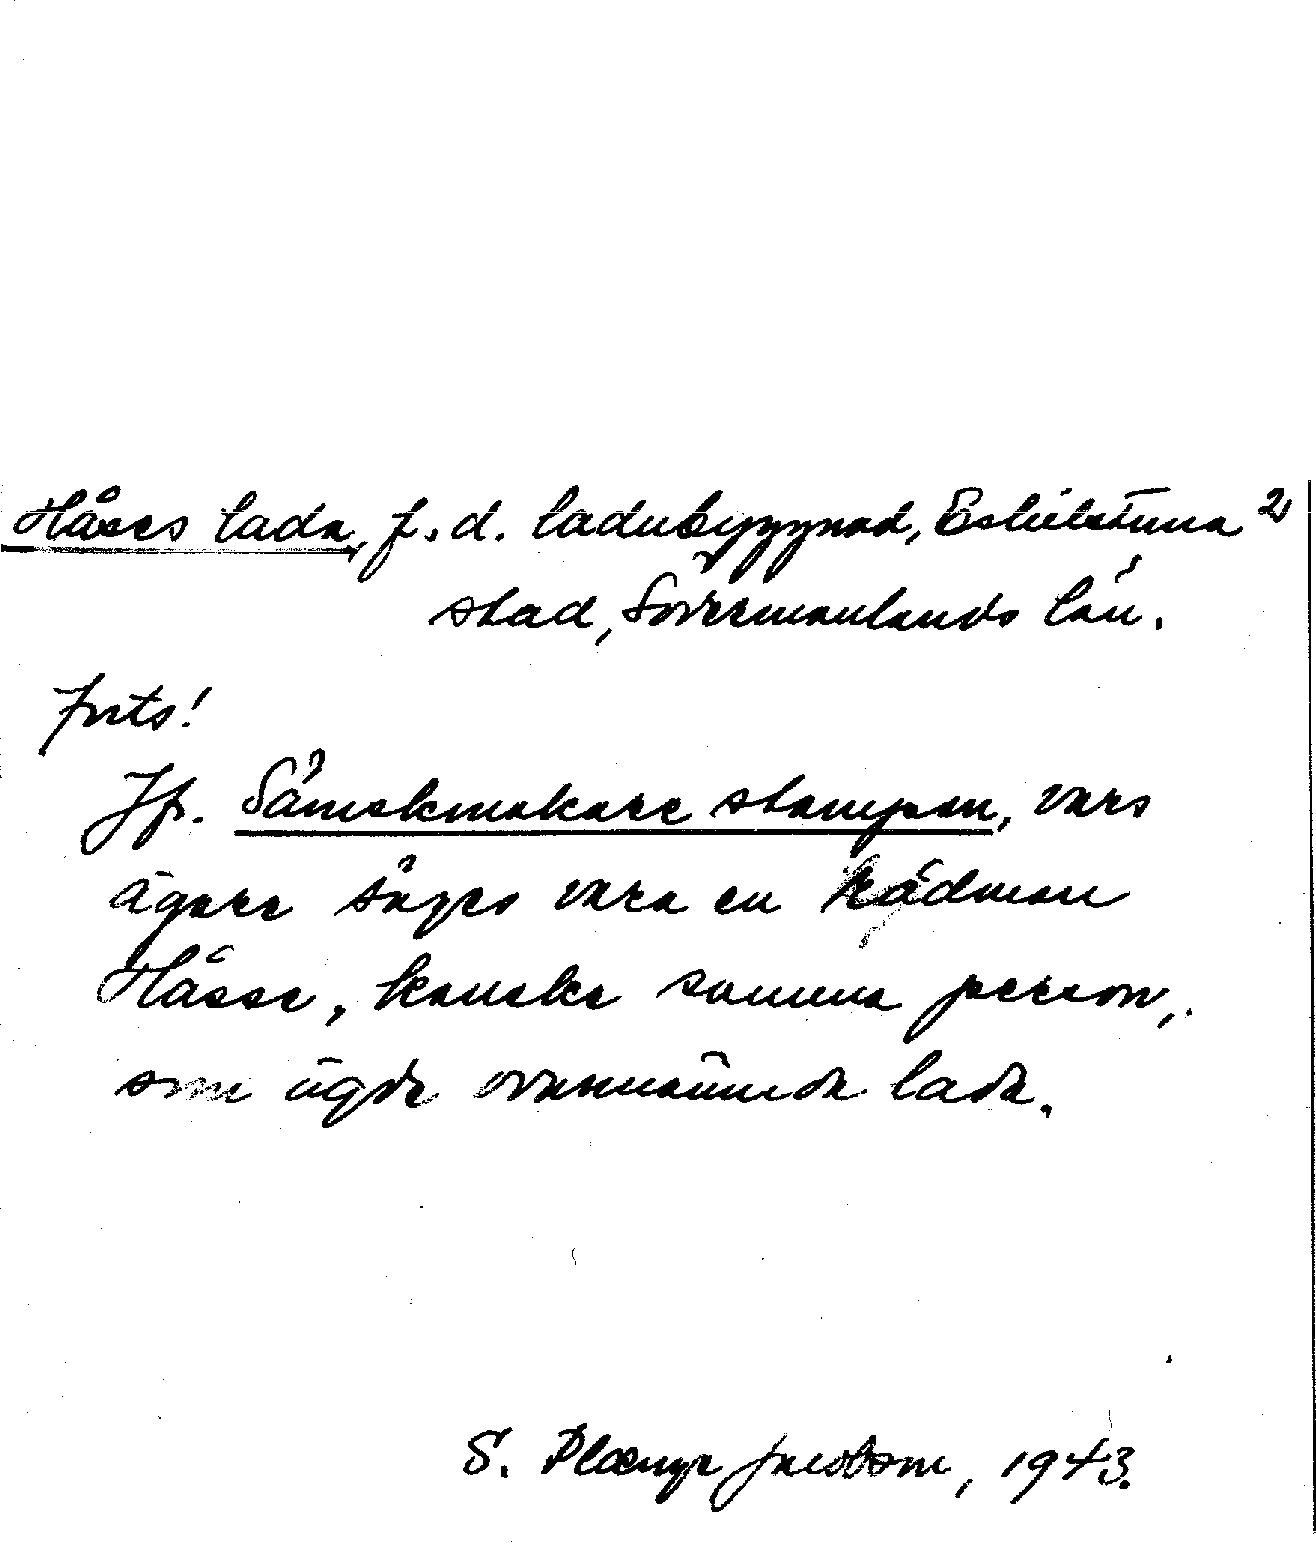 Håses lada, f.d. ladubyggnad, Eskilstuna 2)
stad, Södermanlands län.
Forts!
Jfr. Sämskmakare stampen, vars
ägare säges vara en rådman
Håsse, kanske samma person,
som ägde ovannämnda lada.
S. Plænge Jacobson, 1943.